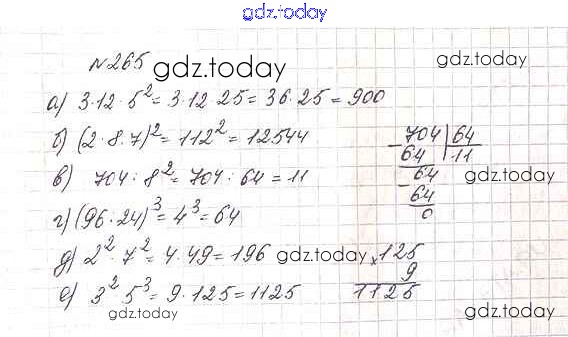 gdz.today
№265
gdz.today
а) 3·12·5²=3·12·25=36·25=900
б) (2·8·7)²=112²=12544
в) 704:8²=704:64=11
г) (96:24)³=4³=64
д) 2²·7²=4·49=196
е) 3²·5³=9·125=1125
704 64
64 11
64
64
0
gdz.today
gdz.today
×125
9
1125
gdz.today
gdz.today